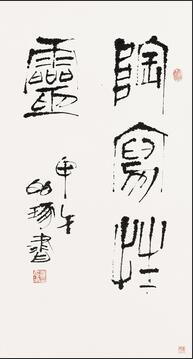 陶寫性
靈
甲午
書